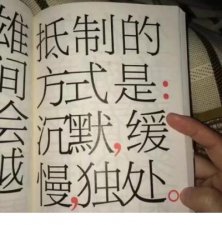 雄抵制的
间方式是：
会沉默，缓
诚慢，独处。